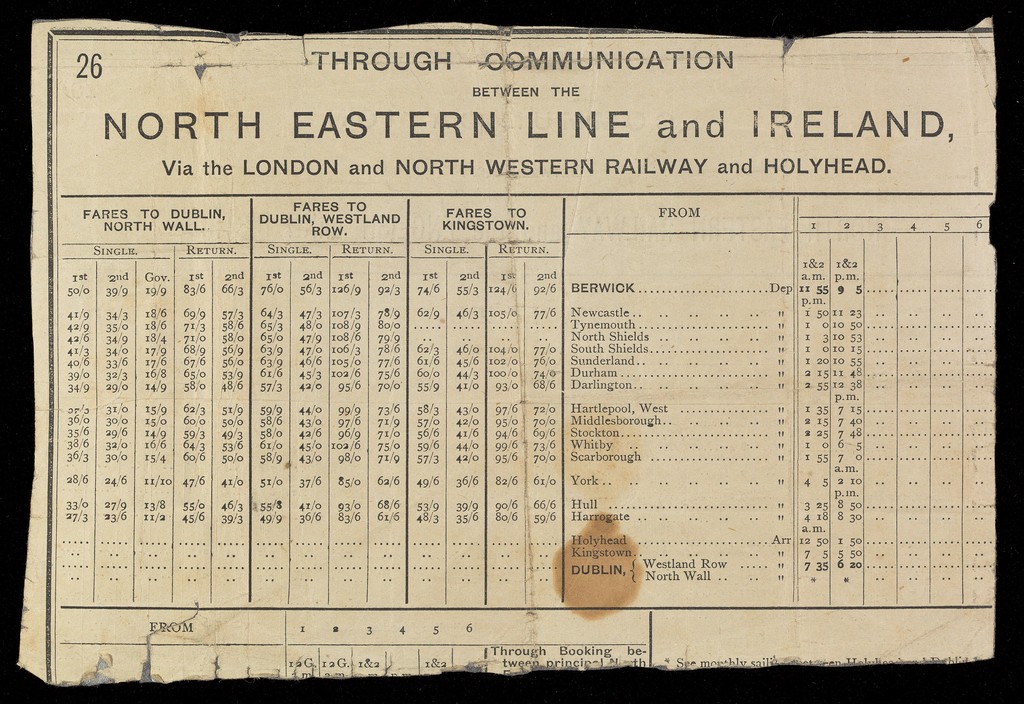 26
THROUGH COMMUNICATION
BETWEEN THE
NORTH EASTERN LINE and IRELAND,
Via the LONDON and NORTH WESTERN RAILWAY and HOLYHEAD.
FARES TO DUBLIN, NORTH WALL. FARES TO DUBLIN, WESTLAND ROW. FARES TO KINGSTOWN. FROM 1 2 3 4 5 6
SINGLE. RETURN. SINGLE. RETURN. SINGLE. RETURN.
1&2 1&2
1st 2nd Gov. 1st 2nd 1st 2nd 1st 2nd 1st 2nd 1st 2nd a.m. p.m.
50/0 39/9 19/9 83/6 66/3 76/0 56/3 126/9 92/3 74/6 55/3 124/6 92/6 BERWICK Dep 11 55 9 5
p.m.
41/9 34/3 18/6 69/9 57/3 64/3 47/3 107/3 78/9 62/9 46/3 105/0 77/6 Newcastle " 1 50 11 23
42/9 35/0 18/6 71/3 58/6 65/3 48/0 108/9 80/0 Tynemouth " 1 0 10 50
42/6 34/9 18/4 71/0 58/0 65/0 47/9 108/6 79/9 North Shields " 1 3 10 53
41/3 34/0 17/9 68/9 56/9 63/9 47/0 106/3 78/6 62/3 46/0 104/0 77/0 South Shields " 1 0 10 15
40/6 33/6 17/6 67/6 56/0 63/9 46/6 105/0 77/6 61/6 45/6 102/0 76/0 Sunderland " 1 20 10 55
39/0 32/3 16/8 65/0 53/9 61/6 45/3 102/6 75/6 60/0 44/3 100/0 74/0 Durham " 2 15 11 48
34/9 29/0 14/9 58/0 48/6 57/3 42/0 95/6 70/0 55/9 41/0 93/0 68/6 Darlington " 2 55 12 38
p.m.
31/0 15/9 62/3 51/9 59/9 44/0 99/9 73/6 58/3 43/0 97/6 72/0 Hartlepool, West " 1 35 7 15
36/0 30/0 15/0 60/0 50/0 58/6 43/0 97/6 71/9 57/0 42/0 95/0 70/0 Middlesborough " 2 15 7 40
35/6 29/6 14/9 59/3 49/3 58/0 42/6 96/9 71/0 56/6 41/6 94/6 69/6 Stockton " 2 25 7 48
38/6 32/0 16/6 64/3 53/6 61/0 45/0 102/6 75/0 59/6 44/0 99/6 73/6 Whitby " 1 0 6 5
36/3 30/0 15/4 60/6 50/0 58/9 43/0 98/0 71/9 57/3 42/0 95/6 70/0 Scarborough " 1 55 7 0
a.m.
28/6 24/6 11/10 47/6 41/0 51/0 37/6 85/0 62/6 49/6 36/6 82/6 61/0 York " 4 5 2 10
p.m.
33/0 27/9 13/8 55/0 46/3 55/8 41/0 93/0 68/6 53/9 39/9 90/6 66/6 Hull " 3 25 8 50
27/3 23/6 11/2 45/6 39/3 49/9 36/6 83/6 61/6 48/3 35/6 80/6 59/6 Harrogate " 4 18 8 30
a.m.
Holyhead Arr 12 50 1 50
Kingstown " 7 5 5 50
DUBLIN, { Westland Row " 7 35 6 20
North Wall " * *
FROM 1 2 3 4 5 6
12G. 12G. 1&2 1&2 Through Booking be-
tween principal * See monthly between Holyhead